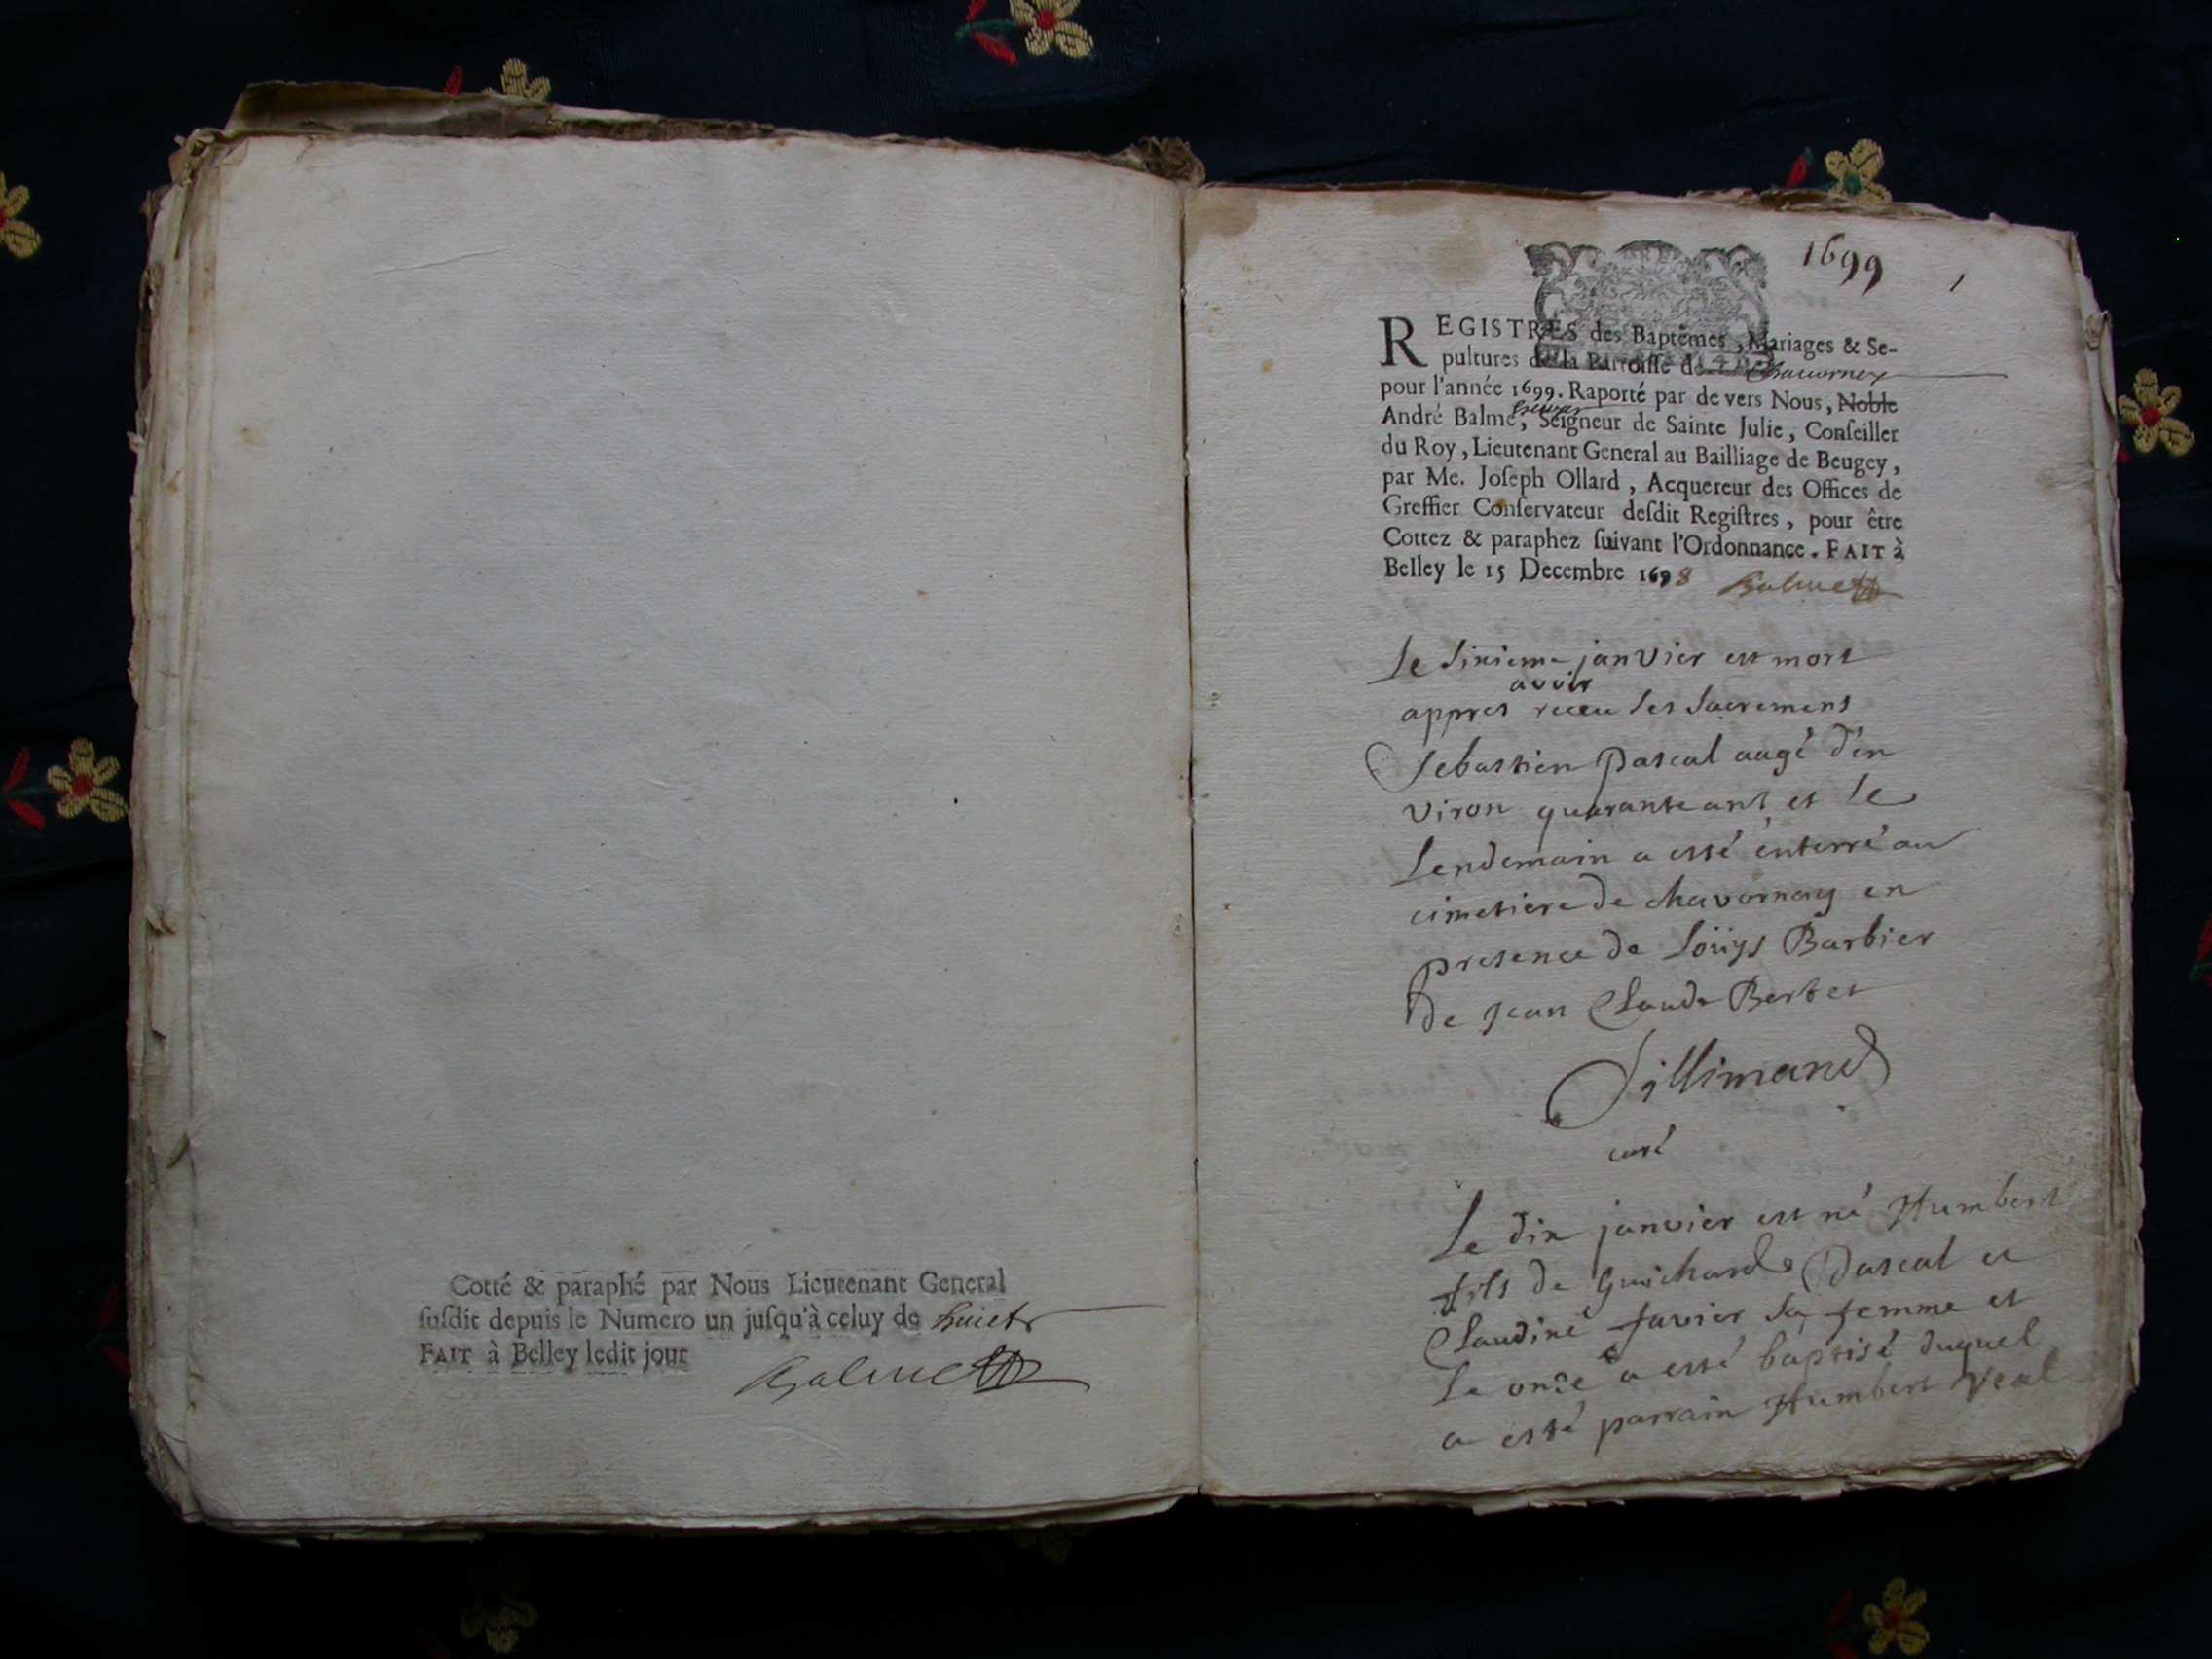 Cotté & paraphé par Nous Lieutenant General
susdit depuis le Numero un jusqu'à celuy de huict
FAIT à Belley ledit jour
Balme
1699
1
REGISTRES des Baptêmes, Mariages & Se-
pultures de la Parroisse de Chavornex
pour l'année 1699. Raporté par de vers Nous, Noble
André Balme, Seigneur de Sainte Julie, Conseiller
du Roy, Lieutenant General au Bailliage de Beugey,
par Me. Joseph Ollard, Acquereur des Offices de
Greffier Conservateur desdit Registres, pour être
Cottez & paraphez suivant l'Ordonnance. FAIT à
Belley le 15 Decembre 1698 Balme
Le sixieme janvier est mort
avoir
appres receu les sacremens
Sebastien Pascal aagé d'en
viron quarante ans et le
Lendemain a esté énterré au
cimetiere de chavornay en
presence de Loüys Barbier
de Jean Claude Berbet
Sillimand
curé
Le dix janvier est né Humbert
fils de Guichard Pascal et
Claudine favier sa femme et
Le onse a esté baptisé duquel
a esté parrain Humbert Veal